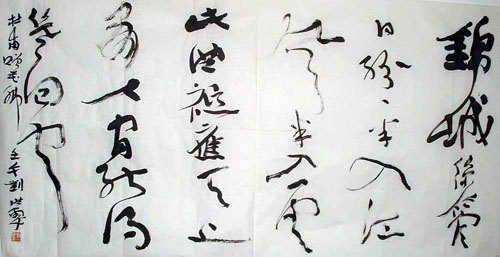 錦城絲管
日紛々半入江
風半入雲
此曲祇應天上
有人間能得
幾回聞
杜甫贈花卿 劉